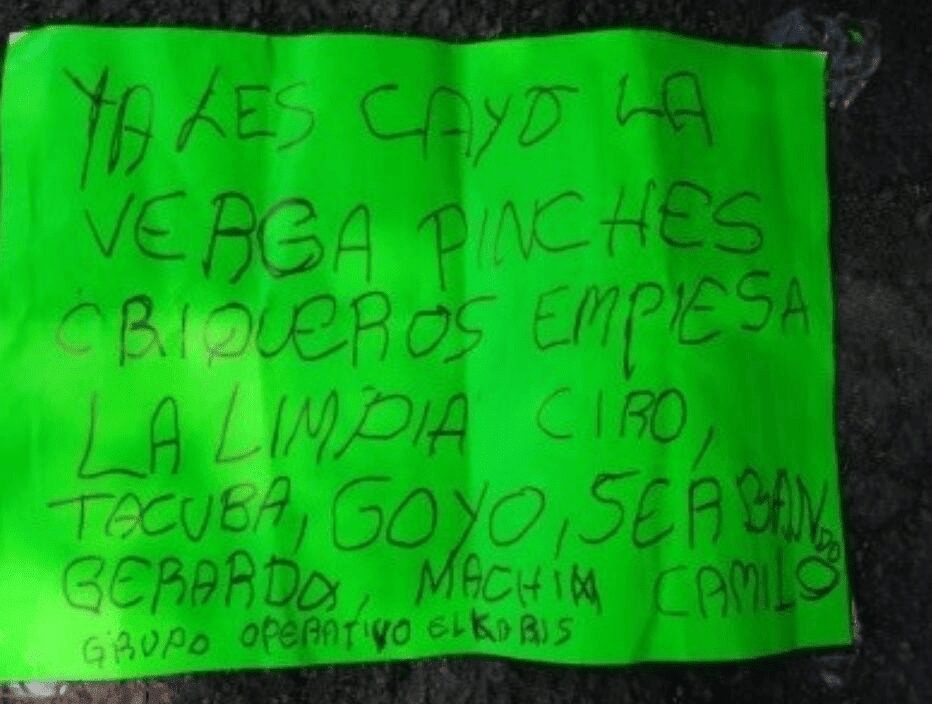 YA LES CAYO LA
VERGA PINCHES
CRIQUEROS EMPIESA
LA LIMPIA CIRO,
TACUBA, GOYO, SEABANDO
GERARDO, MACHIN CAMILO
GRUPO OPERATIVO EL KORIS